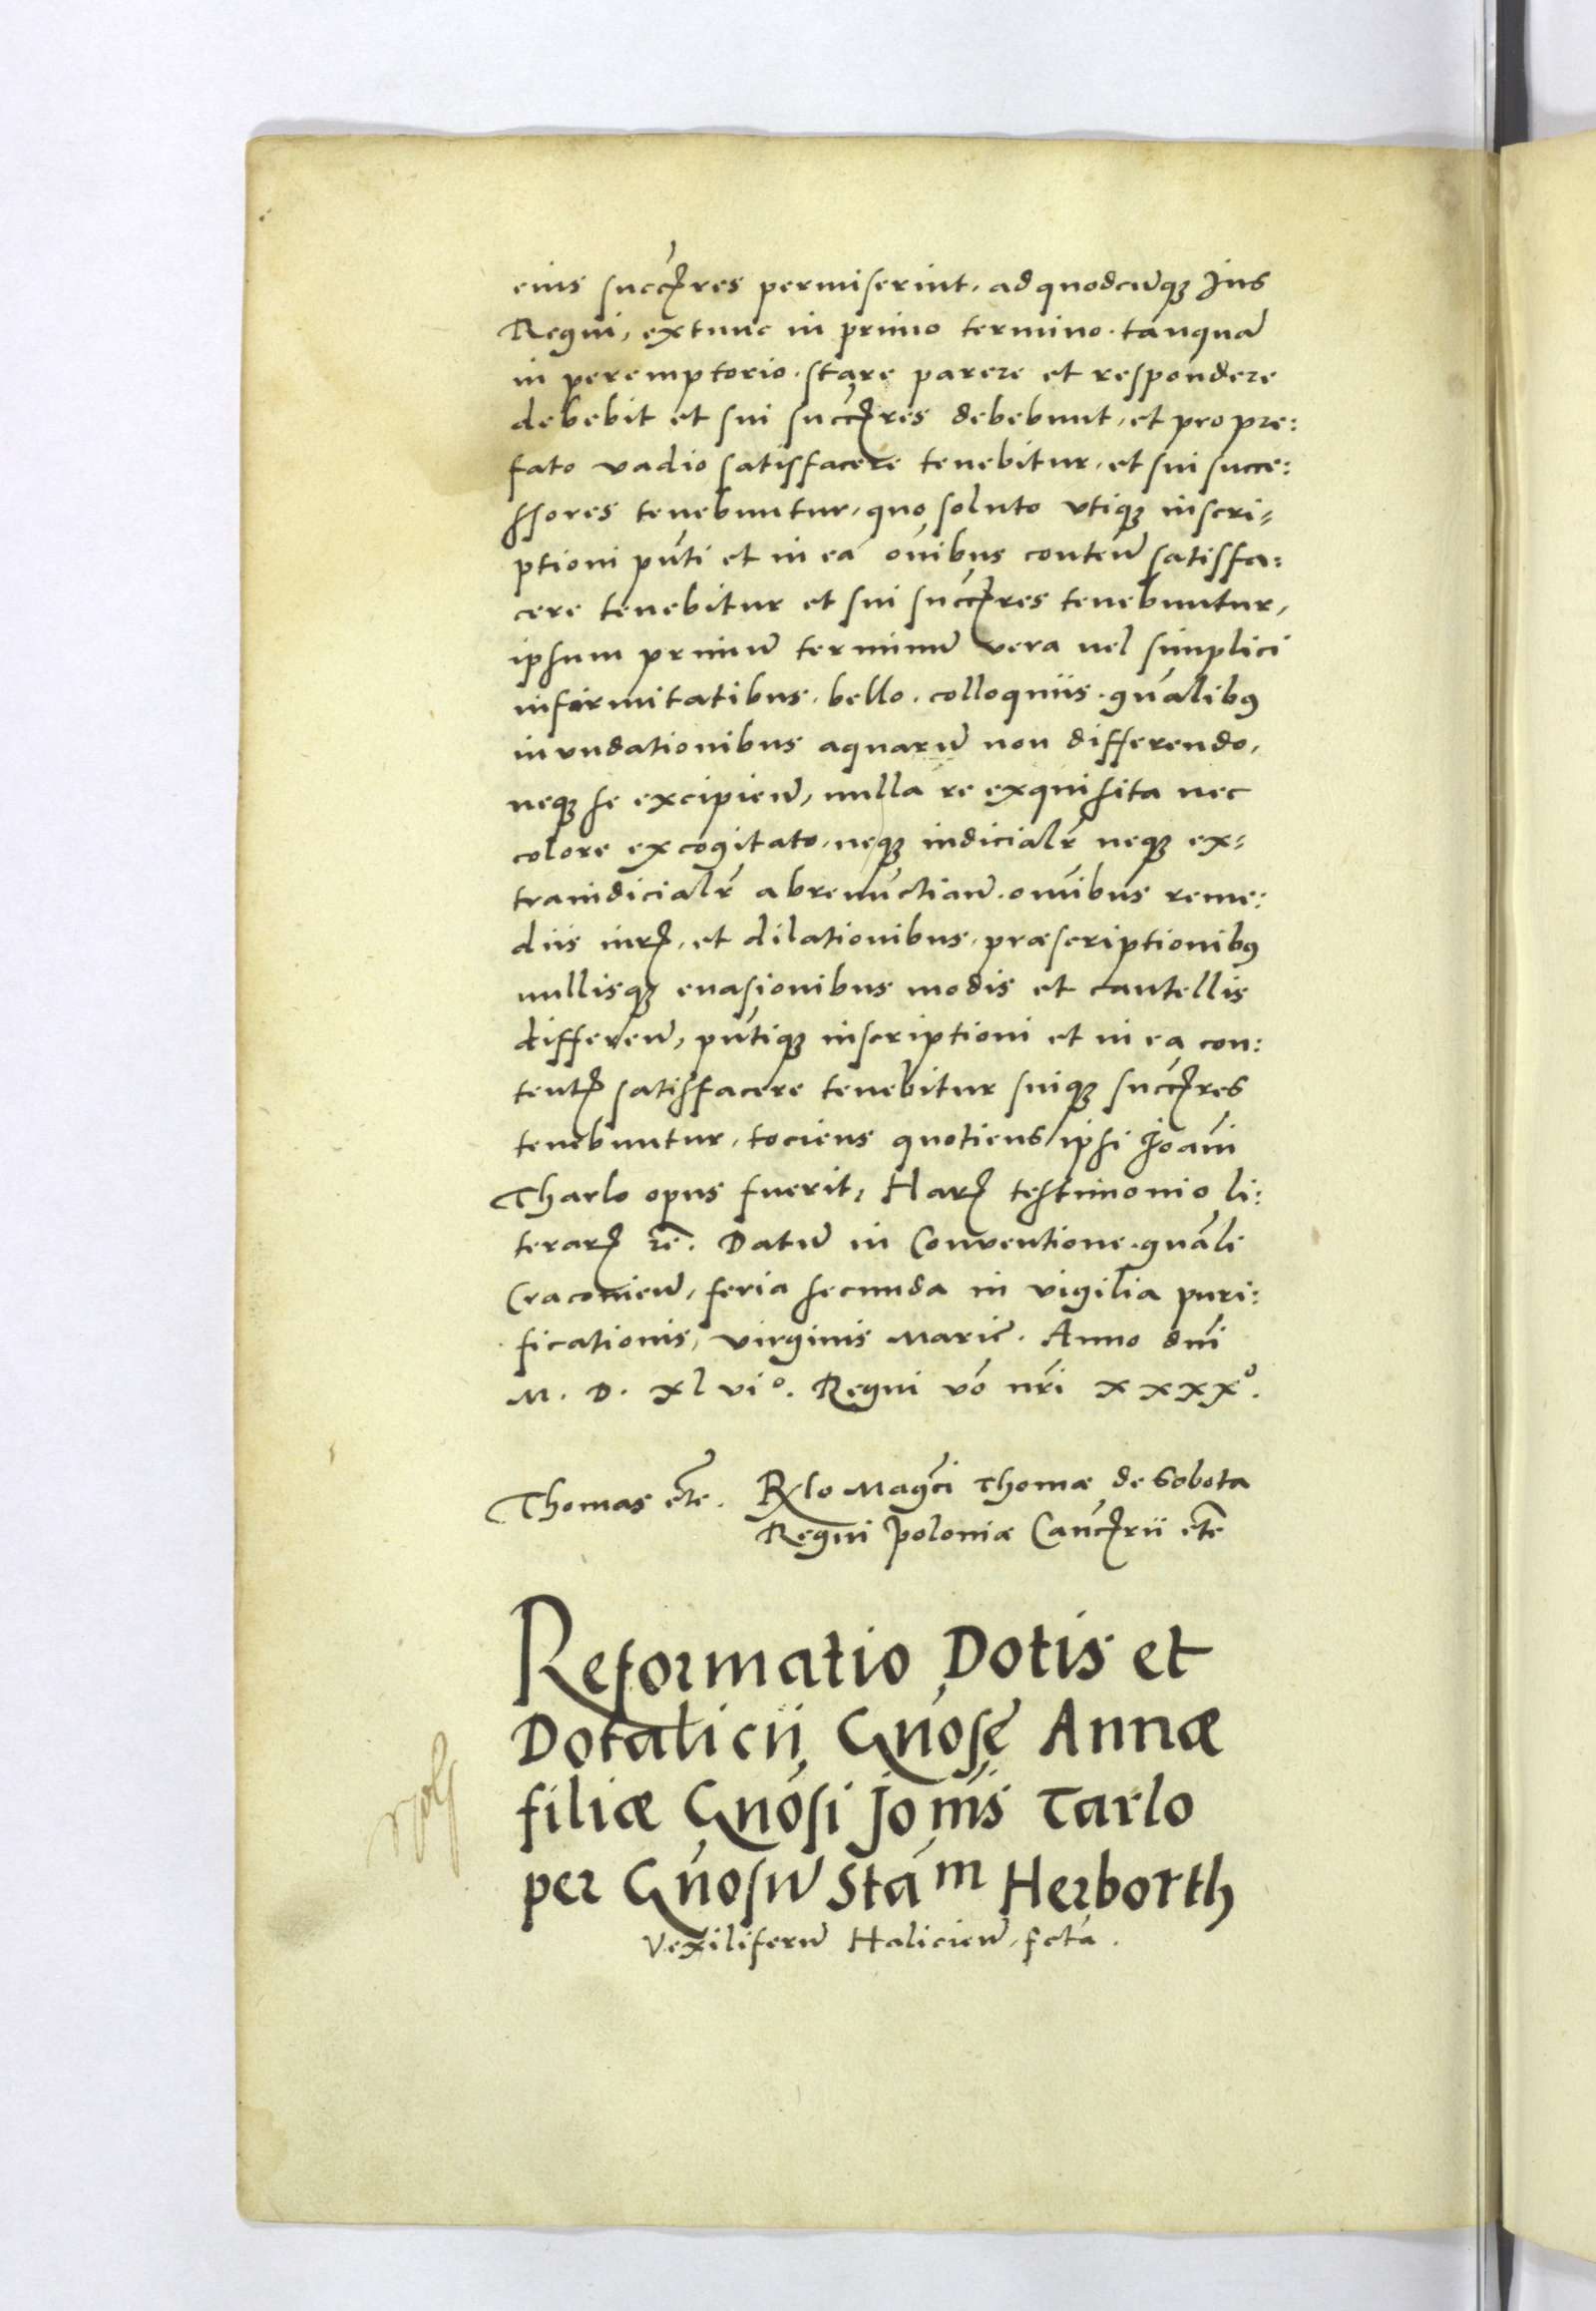 eius succꝫres permiserint, ad quodcūqꝫ Jus
Regni, extunc in primo termino. tanquā
in peremptorio. stare parere et respondere
debebit et sui succꝫres debebunt, et pro pre:
fato vadio satisfacere tenebitur, et sui succe:
ssores tenebuntur, quo soluto vtiqꝫ inscri=
ptioni pn̄ti et in ea oīnibus conten̄ satisfa:
cere tenebitur et sui succꝫres tenebuntur,
ipsum primū terminū vera uel simplici
infirmitatibus. bello. colloquiis. gn̄alibꝯ
invndationibus aquarū non differendo,
neqꝫ se excipien̄, nulla re exquisita nec
colore excogitato, neqꝫ iudicialr̄ neqꝫ ex=
traiudicialr̄ abrenūctian̄. om̄ibus reme:
diis iurꝫ, et dilationibus, præscriptionibꝯ
nullisqꝫ euasionibus modis et cautellis
differen̄, pn̄tiqꝫ inscriptioni et in ea con:
tentꝫ satisfacere tenebitur suiqꝫ succꝫres
tenebuntur, tociens quotiens ipsi Joan̄i
Tharlo opus fuerit, Harꝫ testimonio li:
terarꝫ rē. Datū in Conventione. gn̄ale
Cracouien̄, feria secunda in vigilia puri:
ficationis, virginis Marię. Anno dn̄i
M. D. xlvi°. Regni vō nr̄i xxxx°.
Thomas etc̄. Rꝫlo Maḡci Thomæ de Sobota
Regni poloniæ Cancꝫrii etc̄
Reformatio Dotis et
Dotalicii Gn̄osę Annæ
filiæ Gn̄osi Joīnis Tarlo
per Gn̄osū Stāᵐ Herborth
Vexiliferū Halicien̄, fctā.